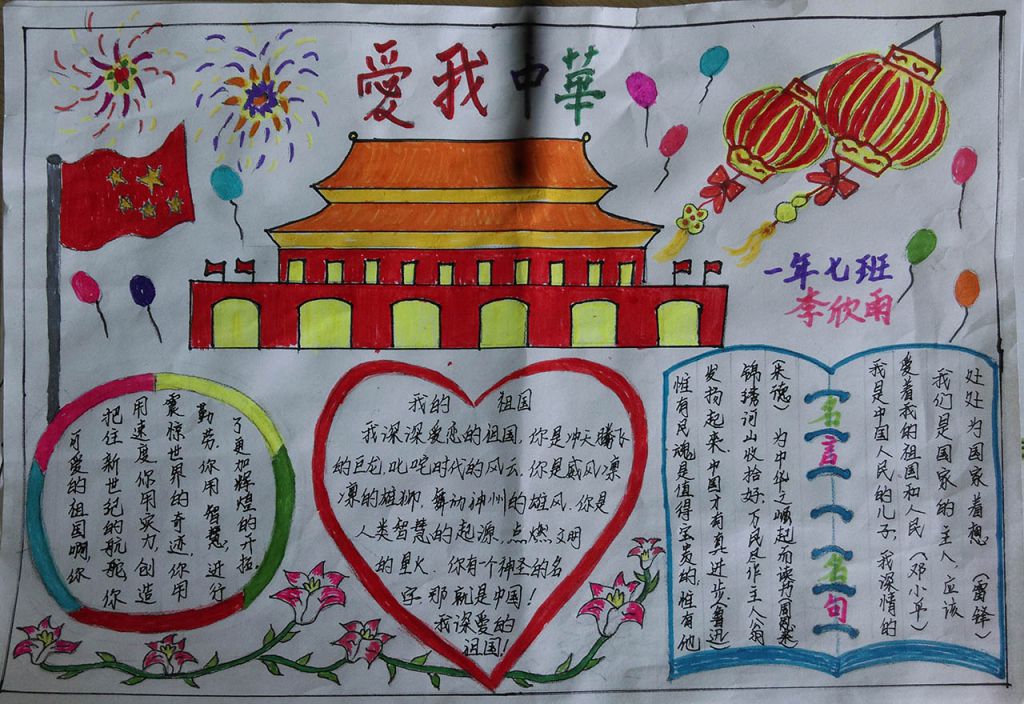 愛我中華
一年七班
李欣雨
可爱的祖国啊,你
把住新世纪的航舵 你
用速度,你用实力,创造
震惊世界的奇迹,你用
勤劳,你用智慧,进行
了更加辉煌的开拓.
我的 祖国
我深深爱恋的祖国.你是冲天腾飞
的巨龙,叱咤时代的风云,你是威风凛
凛的雄狮,舞动神州的雄风.你是
人类智慧的起源,点燃文明
的星火.你有个神圣的名
字,那就是中国!
我深爱的
祖国!
惟有民魂是值得宝贵的,惟有他
发扬起来,中国才有真进步(鲁迅)
锦绣河山收拾好,万民尽作主人翁
(朱德) 为中华之崛起而读书(周恩来)
名言名句
我是中国人民的儿子,我深情的
爱着我的祖国和人民(邓小平)
我们是国家的主人,应该
处处为国家着想(雷锋)